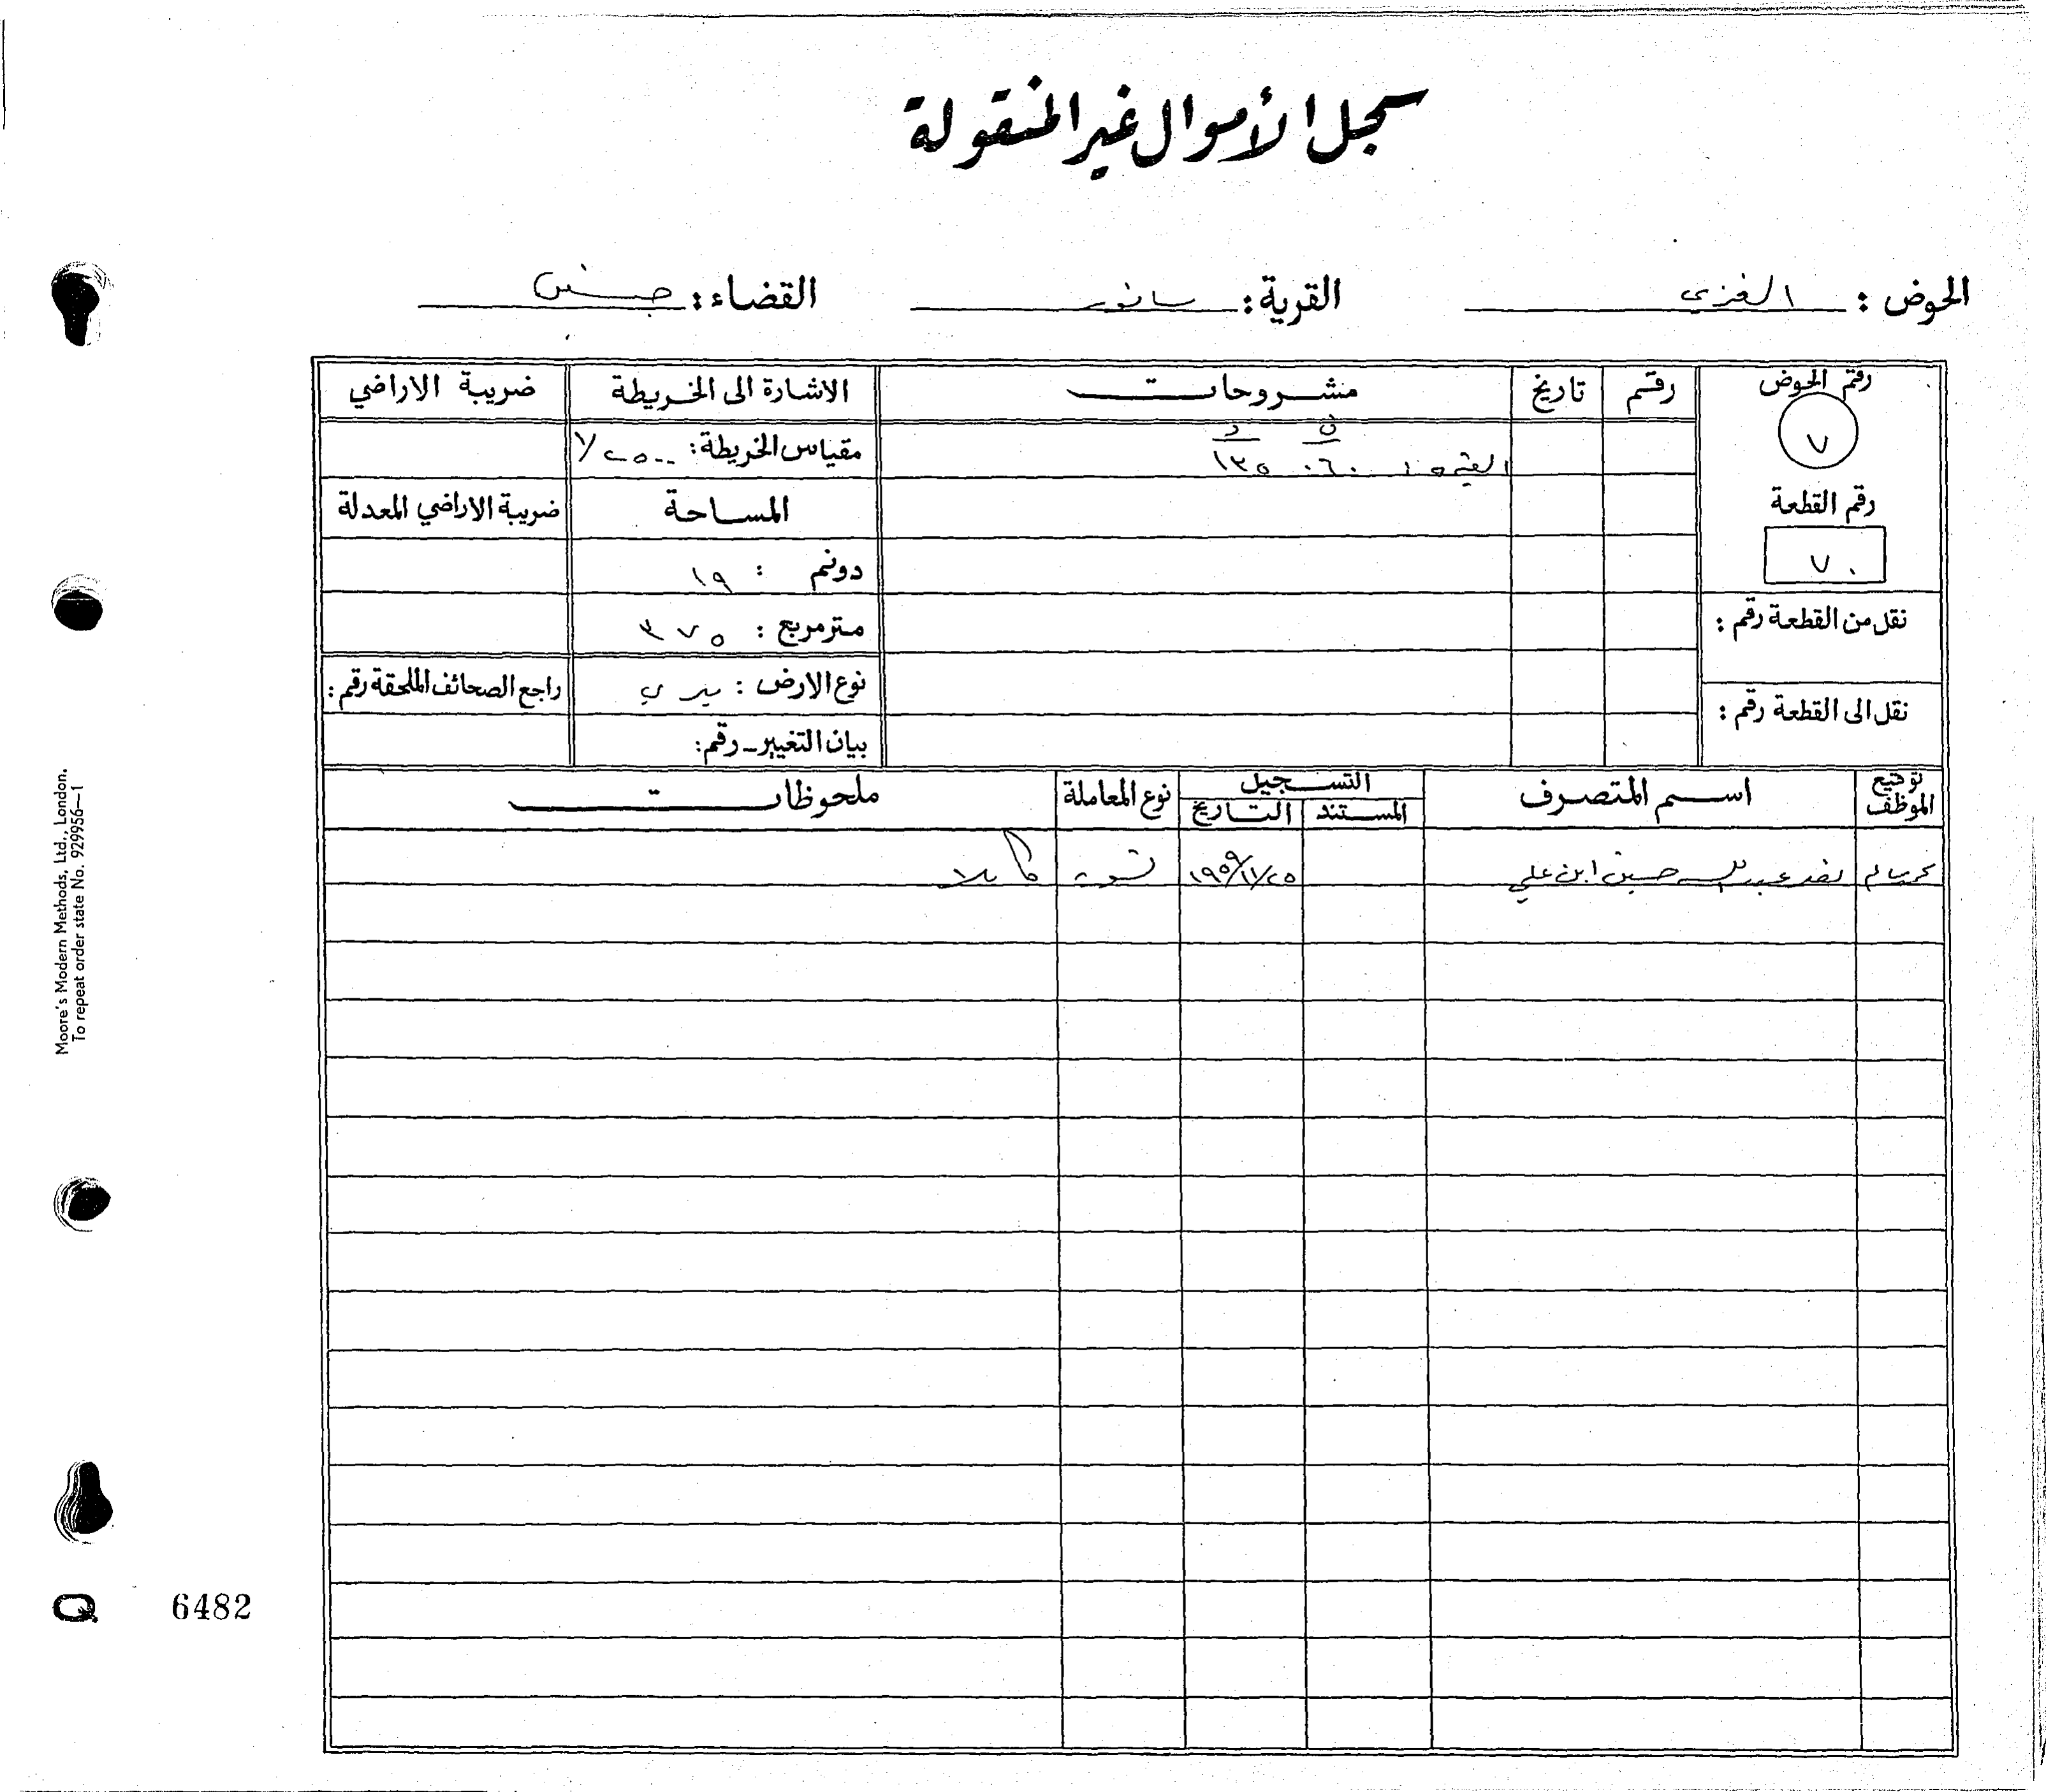 سجل الأموال غير المنقولة
الحوض : الغزي القرية : سانور القضاء : جنين
رقم الحوض رقم تاريخ مشروحات الاشارة الى الخريطة ضريبة الاراضي
٧
ف د
٠٦٠ ١٣٥
مقياس الخريطة : ١/٢٥٠٠
رقم القطعة المساحة ضريبة الاراضي المعدلة
٧٠
دونم : ١٩
نقل من القطعة رقم : متر مربع : ٣٧٥
نوع الارض : ميري راجع الصحائف الملحقة رقم :
نقل الى القطعة رقم :
بيان التغيير - رقم :
توقيع الموظف اسم المتصرف التسجيل نوع المعاملة ملحوظات
المستند التاريخ
عبدالله حسين ابن علي ١٩٥٩/١١/٢٥ تسوية كاملا
Moore's Modern Methods, Ltd., London.
To repeat order state No. 929956—1
Q 6482